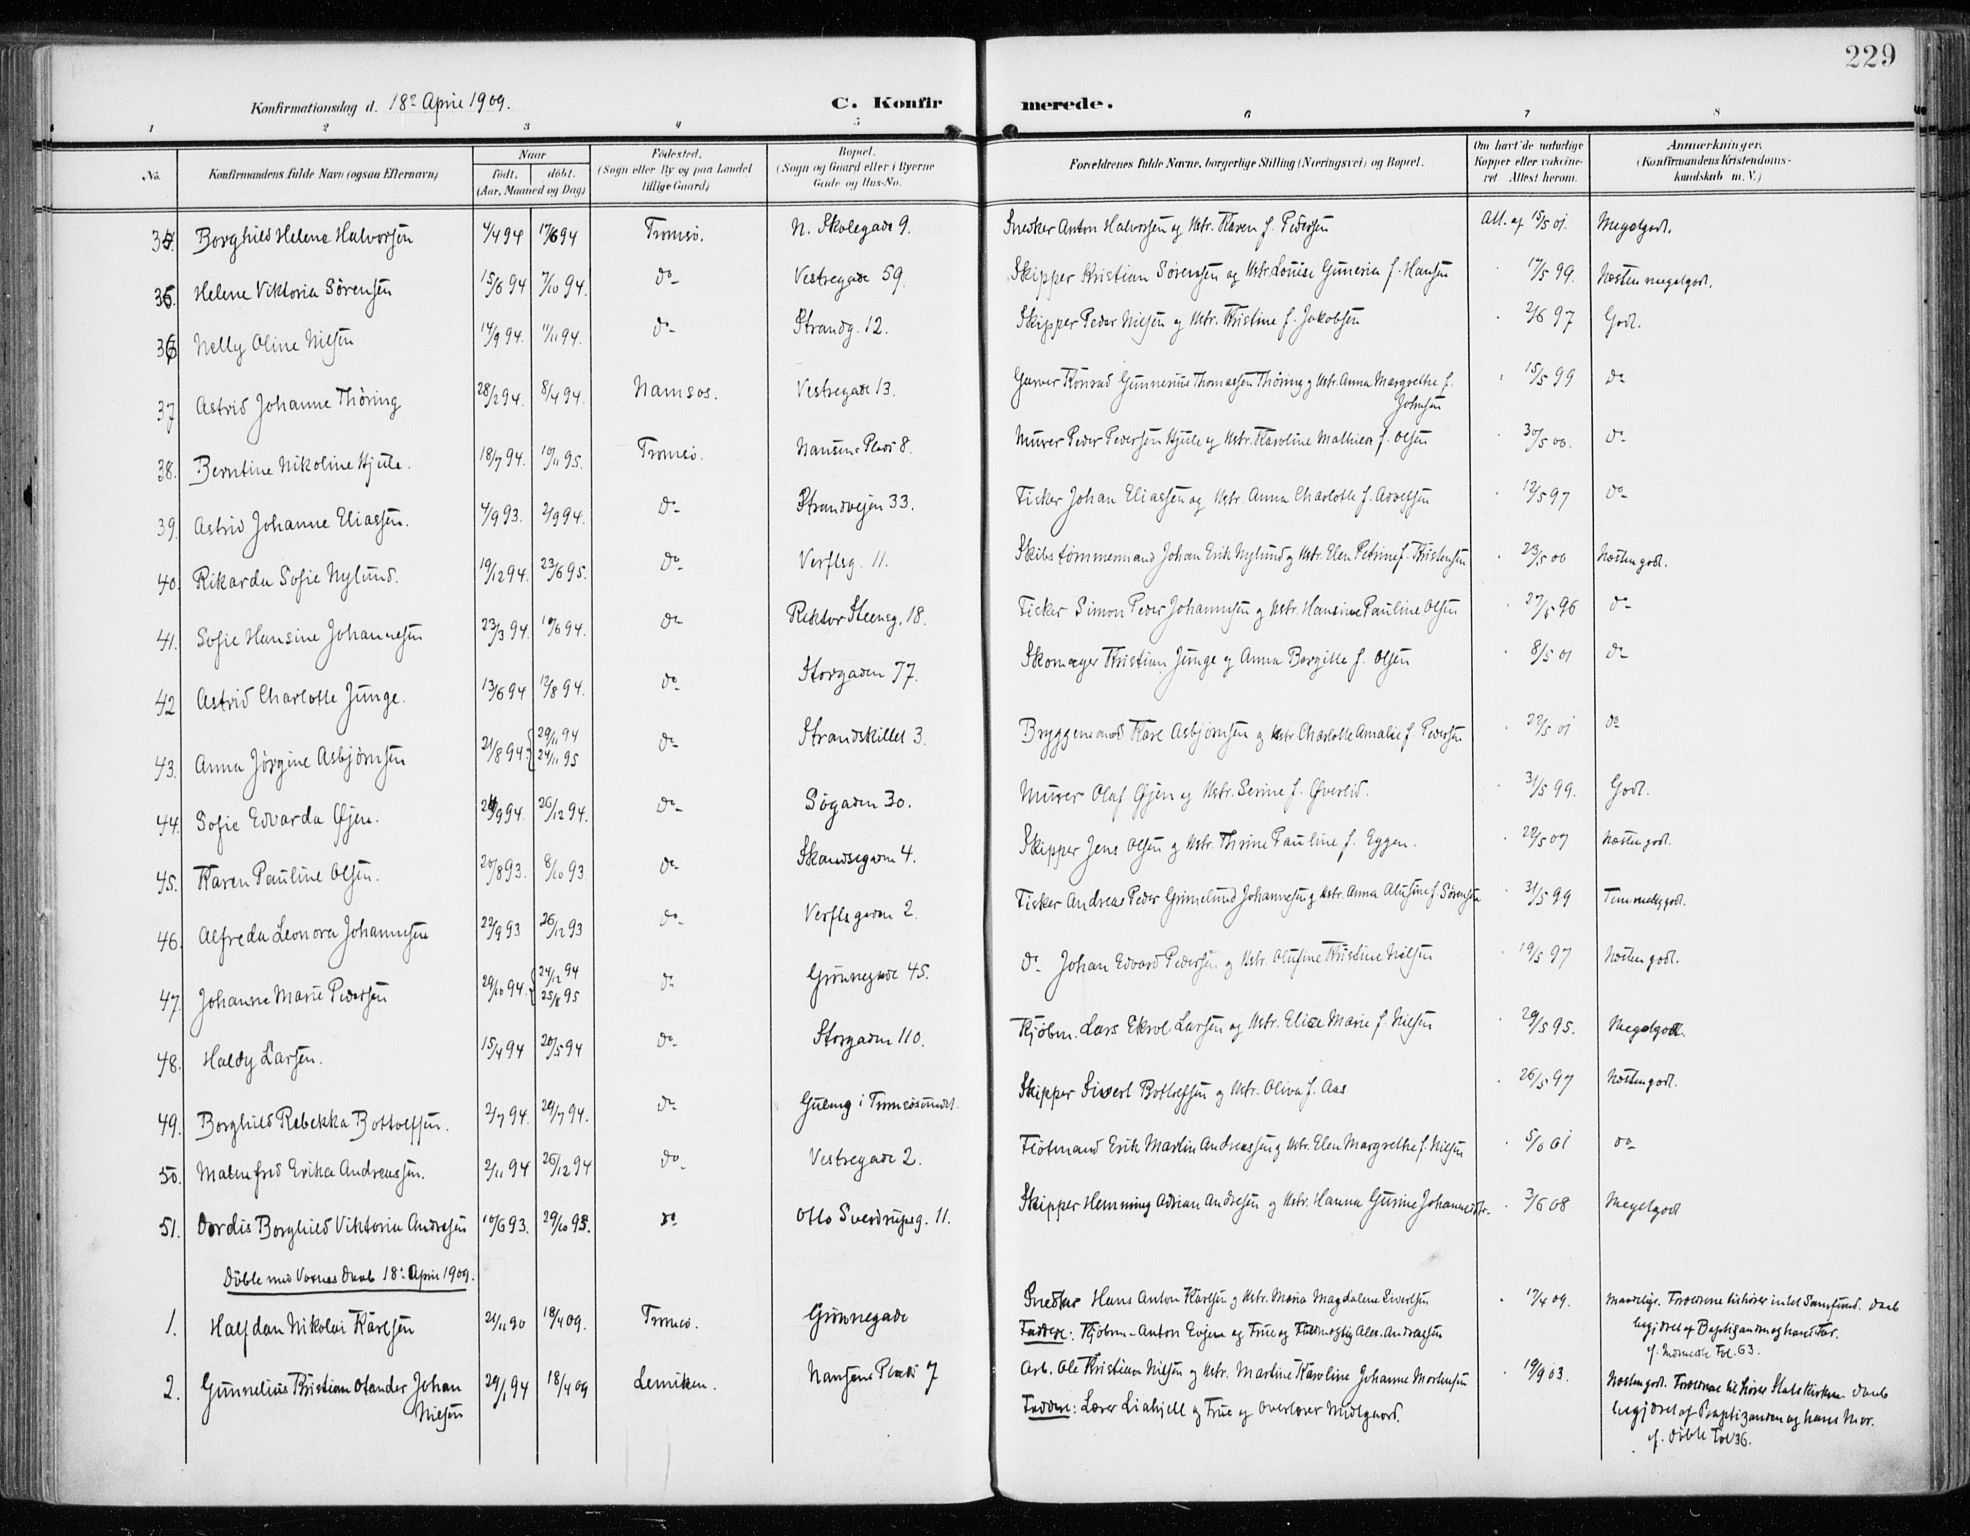 229
Konfirmationsdag d. 18de April 1909.
C. Konfirmerede.
1 2 3 4 5 6 7 8
No. Konfirmandens fulde Navn (ogsaa Efternavn) Naar født. døbt. (Aar, Maaned og Dag) Fødested. (Sogn eller By og paa Landet tillige Gaard) Bopæl. (Sogn og Gaard eller i Byerne Gade og Hus-No. Forældrenes fulde Navne, borgerlige Stilling (Næringsvei) og Bopæl. Om havt de naturlige Kopper eller vaccineret Attest herom. Anmærkninger. (Konfirmandens Kristendomskundskab m. V.)
34. Borghild Helene Halvorsen 4/4 94 17/6 94 Tromsø. N. Skolegade 9. Snedker Anton Halvorsen og Hstr. Karen f. Pedersen Att. af 15/5 01. Megetgodt.
35. Helene Viktoria Sørensen 15/6 94 7/10 94. do Vestregade 59. Skipper Kristian Sørensen og Hstr. Louise Guneria f. Hansen 17/5 99. Næsten megetgodt.
36 Nelly Oline Nilsen 14/9 94. 11/11 94. do Strandg. 12. Skipper Peder Nilsen og Hstr. Kristine f. Jakobsen 2/6 97 Godt.
37 Astrid Johanne Thøring 28/2 94. 8/4 94. Namsos. Vestregade 13. Garver Konrad Gunnerius Thomassen Thøring og Hstr. Anna Margrethe f. Johnsen 15/5 99 do
38. Berntine Nikoline Hjule. 18/7 94. 10/11 95. Tromsø. Nansens Plads 8. Murer Peder Pedersen Hjule og Hstr. Karoline Mathiea f. Olsen 30/5 00. do
39. Astrid Johanne Eliassen. 4/9 93. 2/9 94. do Strandvejen 33. Fisker Johan Eliassen og Hstr. Anna Charlotte f. 12/5 97 do
40. Rikarda Sofie Nylund. 19/12 94. 23/6 95. do Verftsg. 11. Skibstømmermand Johan Erik Nylund og Hstr. Elen Petrine f. Kristensen 23/5 00 Næsten godt.
41. Sofie Hansine Johannesen 23/3 94. 10/6 94. do Rektor Steensg. 18. Fisker Simon Peder Johannesen og Hstr. Hansine Pauline Olsen 27/5 96 do
42 Astrid Charlotte Junge. 13/6 94 12/8 94. do Storgaden 77. Skomager Kristian Junge og Anna Borgitte f. Olsen 8/5 01 do
43. Anna Jørgine Asbjørnsen 21/8 94. 29/11 94 24/11 95 do Strandskillet 3. Bryggemand Karl Asbjørnsen og Hstr. Charlotte Amalie f. Pedersen 22/5 01 do
44. Sofie Edvarda Gjen. /9 94. 26/12 94. do Søgaden 30. Murer Olaf Gjen og Hstr. Serine f. Øverlid. 31/5 99. Godt.
45. Karen Pauline Olsen. 20/8 93. 8/10 93. do Skandsegaden 4. Skipper Jens Olsen og Hstr. Thrine Pauline f. Eggen. 22/5 07 Næsten godt.
46. Alfreda Leonora Johannesen 22/9 93 26/12 93 do Verftsgaden 2. Fisker Andreas Peder Grimelund Johannesen og Hstr. Anna Alusine f. Sørensen 31/5 99 Temmelig godt.
47. Johanne Marie Pedersen 29/10 94. 24/12 94 25/8 95 do Grønnegade 45. do Johan Edvard Pedersen og Hstr. Olufine Kristine Nilsen 19/5 97 Næsten godt.
48. Haldy Larsen. 15/4 94 20/5 94 do Storgaden 110. Kjøbm. Lars Ekrol Larsen og Hstr. Elise Marie f. Nilsen 29/5 95. Megetgodt.
49. Borghild Rebekka Bottolfsen. 2/7 94. 29/7 94. do i Tromsøsundet. Skipper Sivert Bottolfsen og Hstr. Oliva f. Aas 26/5 97 Næsten godt.
50. Malmfrid Erika Andreassen. 2/11 94 26/12 94 do Vestregade 2. Flotmand Erik Martin Andreassen og Hstr. Elen Margrethe f. Nilsen 5/10 01 do
51. Dordis Borghild Viktoria Andresen 10/6 93. 29/10 93. do Otto Sverdrupsg. 11. Skipper Hemming Adrian Andresen og Hstr. Hanna Gurine Johannesdtr. 3/6 08 Megetgodt
Døbte med Voxnes Daab 18de April 1909.
1. Halfdan Nikolai Karlsen 21/11 90 18/4 09. Tromsø. Grønnegade Snedker Hans Anton Karlsen og Hstr. Maria Magdalene Sivertsen 17/4 09. Forældrene tilhører intet Samfund. Daab
Faddere: Kjøbm. Anton Evjen og Frue og Fuldmægtig Alex. Andreassen begjæret af Baptizanden og hans Far.
cf. Fol. 63.
2. Gunnelius Kristian Otander Johan Nilsen 29/1 94 18/4 09 Lemiken. Nansens Plads 7 Arb. Ole Kristian Nilsen og Hstr. Martine Karoline Johanne Mortensen 19/9 03. Næsten godt. Forældrene tilhører Statskirken. Daab
Faddere: Lærer Liahjell og Frue og Overlærer Midtgaard. begjæret af Baptizanden og hans Mor.
cf. Døbte Fol 36.